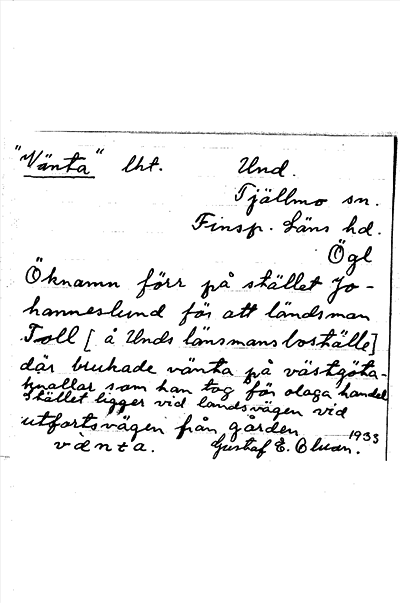 "Vänta" lht. Und.
Tjällmo sn.
Finsp. Läns hd.
Ögl
Öknamn förr på stället Jo-
hanneslund för att ländsman
Toll [å Unds länsmansboställe]
där brukade vänta på västgöta-
knallar som han tog för olaga handel
Stället ligger vid landsvägen vid
utfartsvägen från gården
vànta. Gustaf E. Bluan. 1933